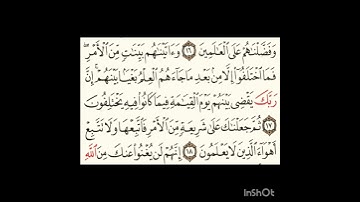 وَفَضَّلْنَٰهُمْ عَلَى ٱلْعَٰلَمِينَ ١٦ وَءَاتَيْنَٰهُم بَيِّنَٰتٍ مِّنَ ٱلْأَمْرِ ۖ
فَمَا ٱخْتَلَفُوٓا۟ إِلَّا مِنۢ بَعْدِ مَا جَآءَهُمُ ٱلْعِلْمُ بَغْيًۢا بَيْنَهُمْ ۚ إِنَّ
رَبَّكَ يَقْضِى بَيْنَهُمْ يَوْمَ ٱلْقِيَٰمَةِ فِيمَا كَانُوا۟ فِيهِ يَخْتَلِفُونَ
١٧ ثُمَّ جَعَلْنَٰكَ عَلَىٰ شَرِيعَةٍ مِّنَ ٱلْأَمْرِ فَٱتَّبِعْهَا وَلَا تَتَّبِعْ
أَهْوَآءَ ٱلَّذِينَ لَا يَعْلَمُونَ ١٨ إِنَّهُمْ لَن يُغْنُوا۟ عَنكَ مِنَ ٱللَّهِ
InShOt